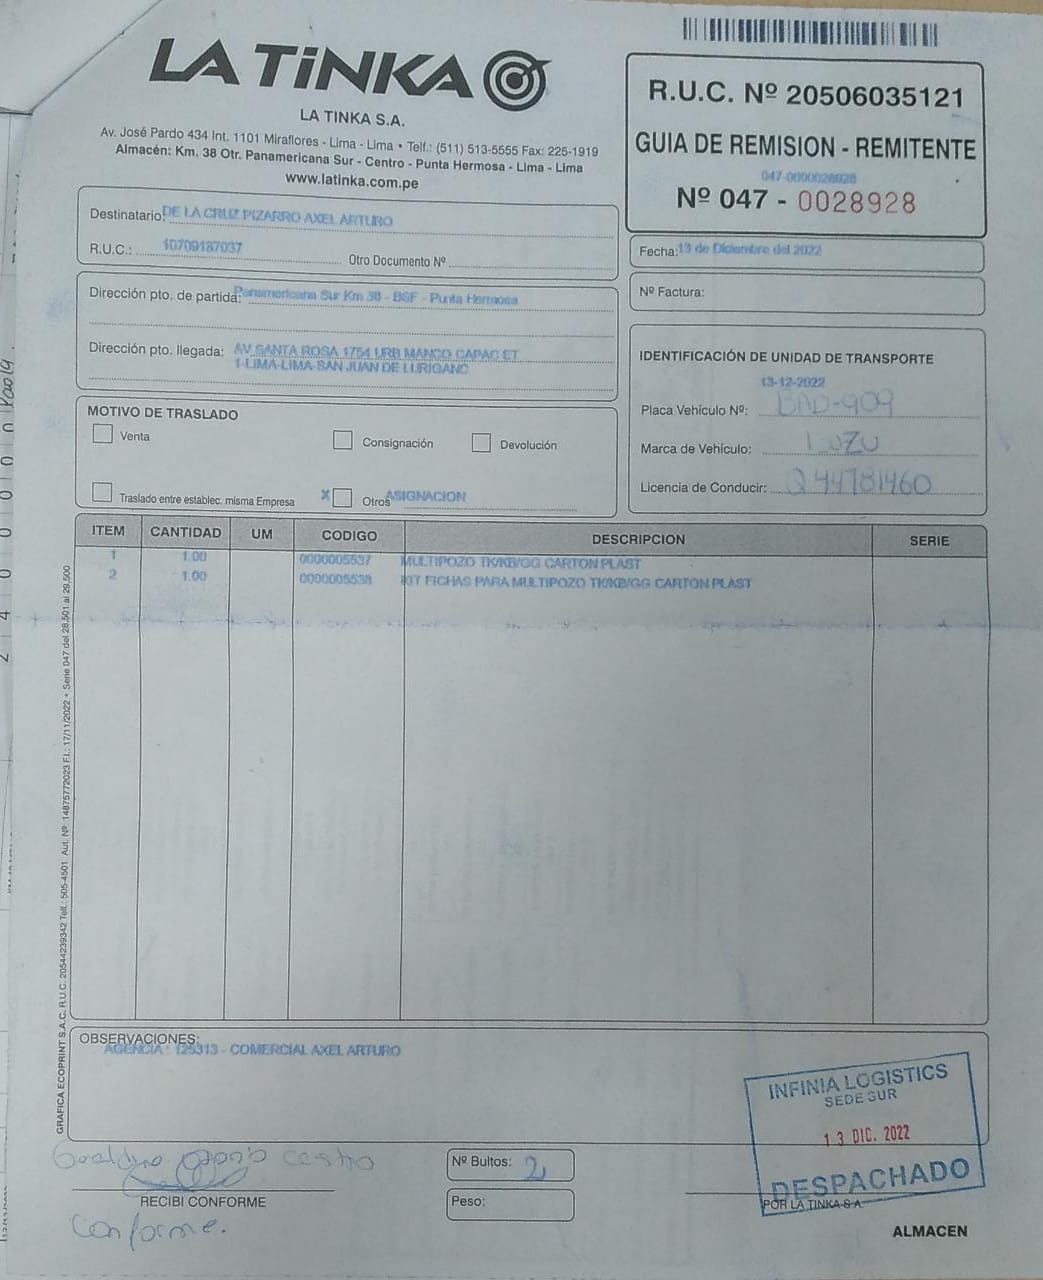 LA TiNKA
LA TINKA S.A.
Av. José Pardo 434 Int. 1101 Miraflores - Lima - Lima • Telf.: (511) 513-5555 Fax: 225-1919
Almacén: Km. 38 Otr. Panamericana Sur - Centro - Punta Hermosa - Lima - Lima
www.latinka.com.pe
R.U.C. Nº 20506035121
GUIA DE REMISION - REMITENTE
047-0000028928
Nº 047 - 0028928
Destinatario: DE LA CRUZ PIZARRO AXEL ARTURO
R.U.C.: 10709187037 Otro Documento Nº
Fecha: 13 de Diciembre del 2022
Dirección pto. de partida: Panamericana Sur Km 38 - BSF - Punta Hermosa
Nº Factura:
Dirección pto. llegada: AV SANTA ROSA 1754 URB MANCO CAPAC ET
1-LIMA-LIMA-SAN JUAN DE LURIGANC
IDENTIFICACIÓN DE UNIDAD DE TRANSPORTE
13-12-2022
Placa Vehículo Nº: BAD-909
Marca de Vehículo:
Licencia de Conducir: Q44781460
MOTIVO DE TRASLADO
Venta Consignación Devolución
Traslado entre establec. misma Empresa X Otros ASIGNACION
ITEM CANTIDAD UM CODIGO DESCRIPCION SERIE
1 1.00 0000005537 MULTIPOZO TK/KB/GG CARTON PLAST
2 1.00 0000005538 KIT FICHAS PARA MULTIPOZO TK/KB/GG CARTON PLAST
GRAFICA ECOPRINT S.A.C. R.U.C. 20544239342 Telf.: 505-4501 Aut. Nº: 14875772023 F.I.: 17/11/2022 • Serie 047 del 28,501 al 29,500
OBSERVACIONES:
AGENCIA : 125313 - COMERCIAL AXEL ARTURO
INFINIA LOGISTICS
SEDE SUR
13 DIC. 2022
DESPACHADO
castro
RECIBI CONFORME
Conforme.
Nº Bultos: 2
Peso:
POR LA TINKA S.A.
ALMACEN